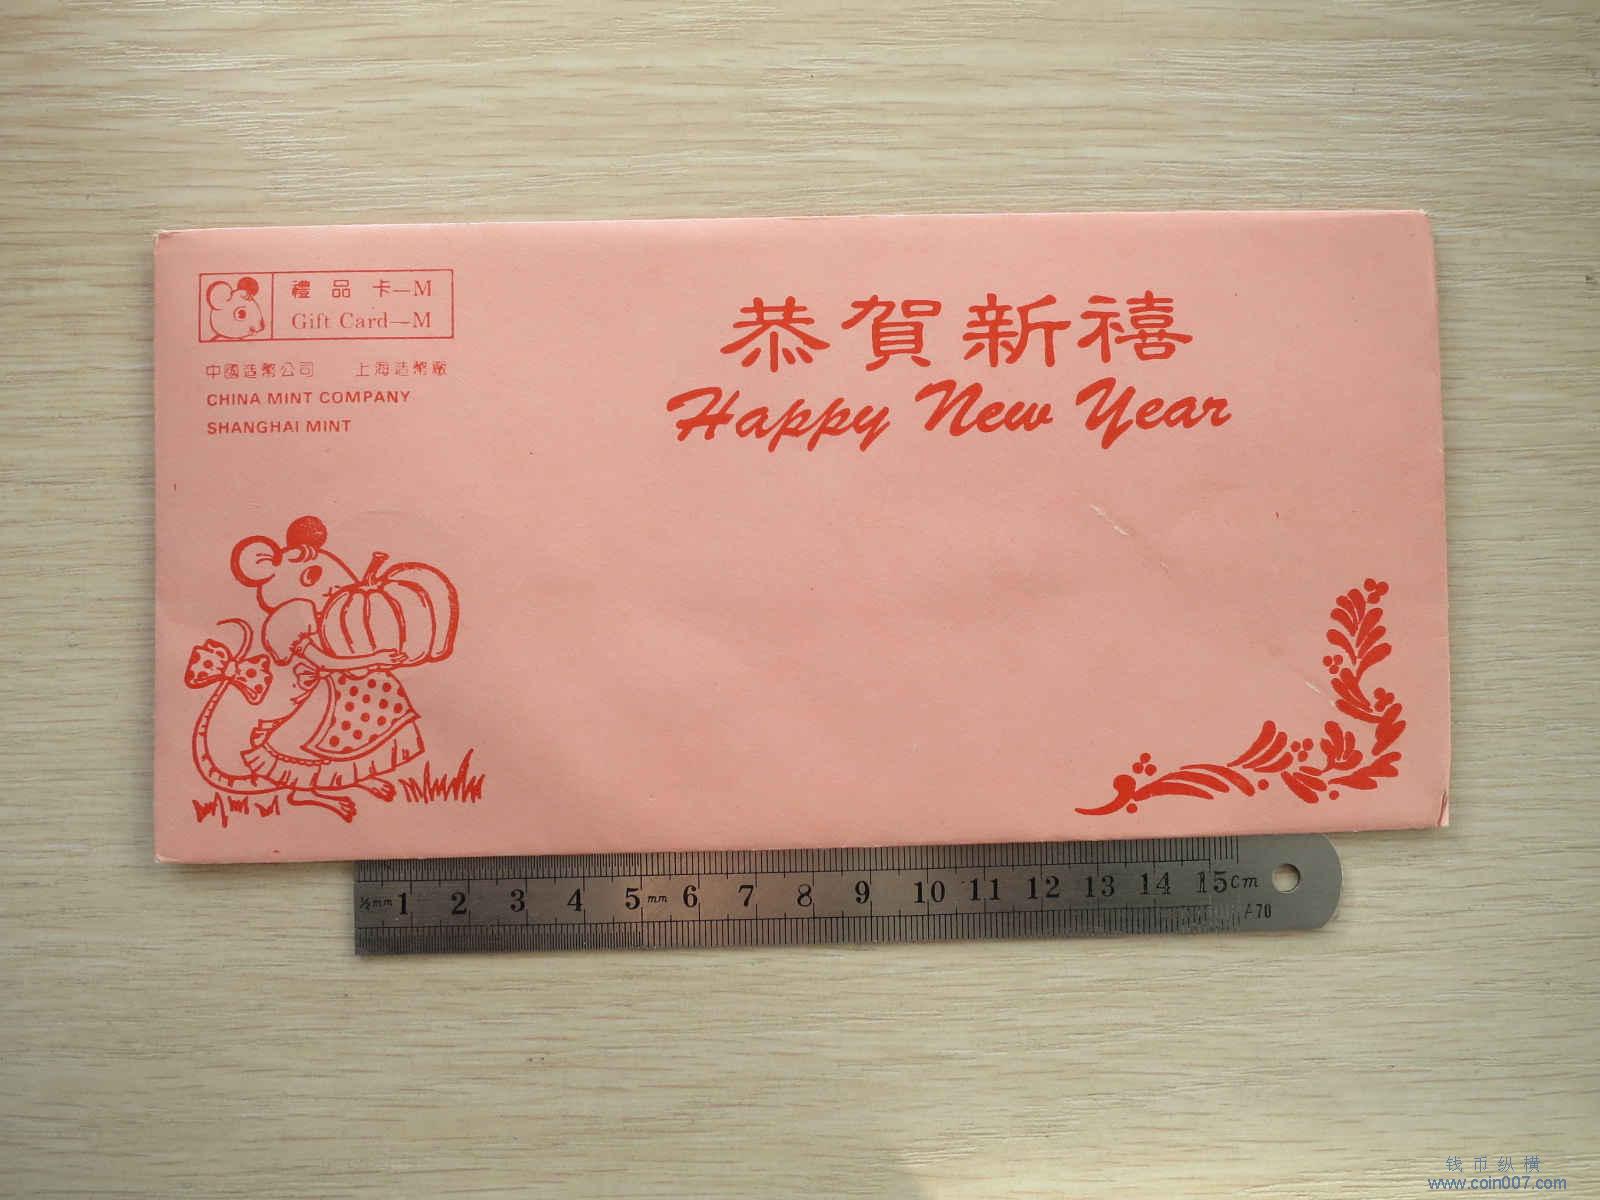 禮品卡—M
Gift Card—M
中國造幣公司 上海造幣廠
CHINA MINT COMPANY
SHANGHAI MINT
恭賀新禧
Happy New Year
½mm 1 2 3 4 5 mm 6 7 8 9 10 11 12 13 14 15cm
钱币纵横
www.coin007.com